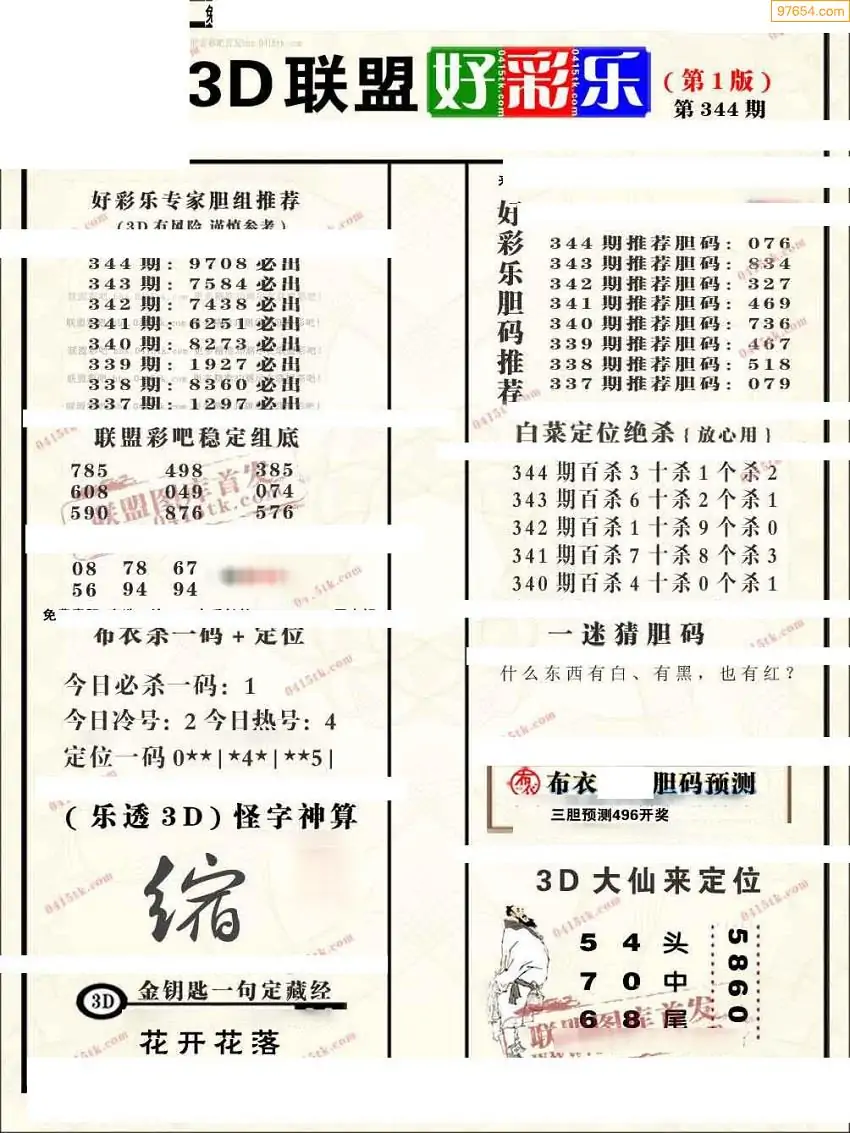 97654.com
3D联盟好彩乐
(第1版)
第344期
好彩乐专家胆组推荐
(3D有风险 谨慎参考)
344期: 9708必出
343期: 7584必出
342期: 7438必出
341期: 6251必出
340期: 8273必出
339期: 1927必出
338期: 8360必出
337期: 1297必出
联盟彩吧稳定组底
785 498 385
608 049 074
590 876 576
08 78 67
56 94 94
布衣杀一码+定位
今日必杀一码: 1
今日冷号: 2 今日热号: 4
定位一码0**|*4*|**5|
(乐透3D)怪字神算
缩
3D 金钥匙一句定藏经
花开花落
好彩乐胆码推荐
344期推荐胆码: 076
343期推荐胆码: 834
342期推荐胆码: 327
341期推荐胆码: 469
340期推荐胆码: 736
339期推荐胆码: 467
338期推荐胆码: 518
337期推荐胆码: 079
白菜定位绝杀{放心用}
344期百杀3十杀1个杀2
343期百杀6十杀2个杀1
342期百杀1十杀9个杀0
341期百杀7十杀8个杀3
340期百杀4十杀0个杀1
一迷猜胆码
什么东西有白、有黑，也有红?
布衣 胆码预测
三胆预测496开奖
3D大仙来定位
5 4 头
7 0 中
6 8 尾
5860
联盟图库首发
0415tk.com